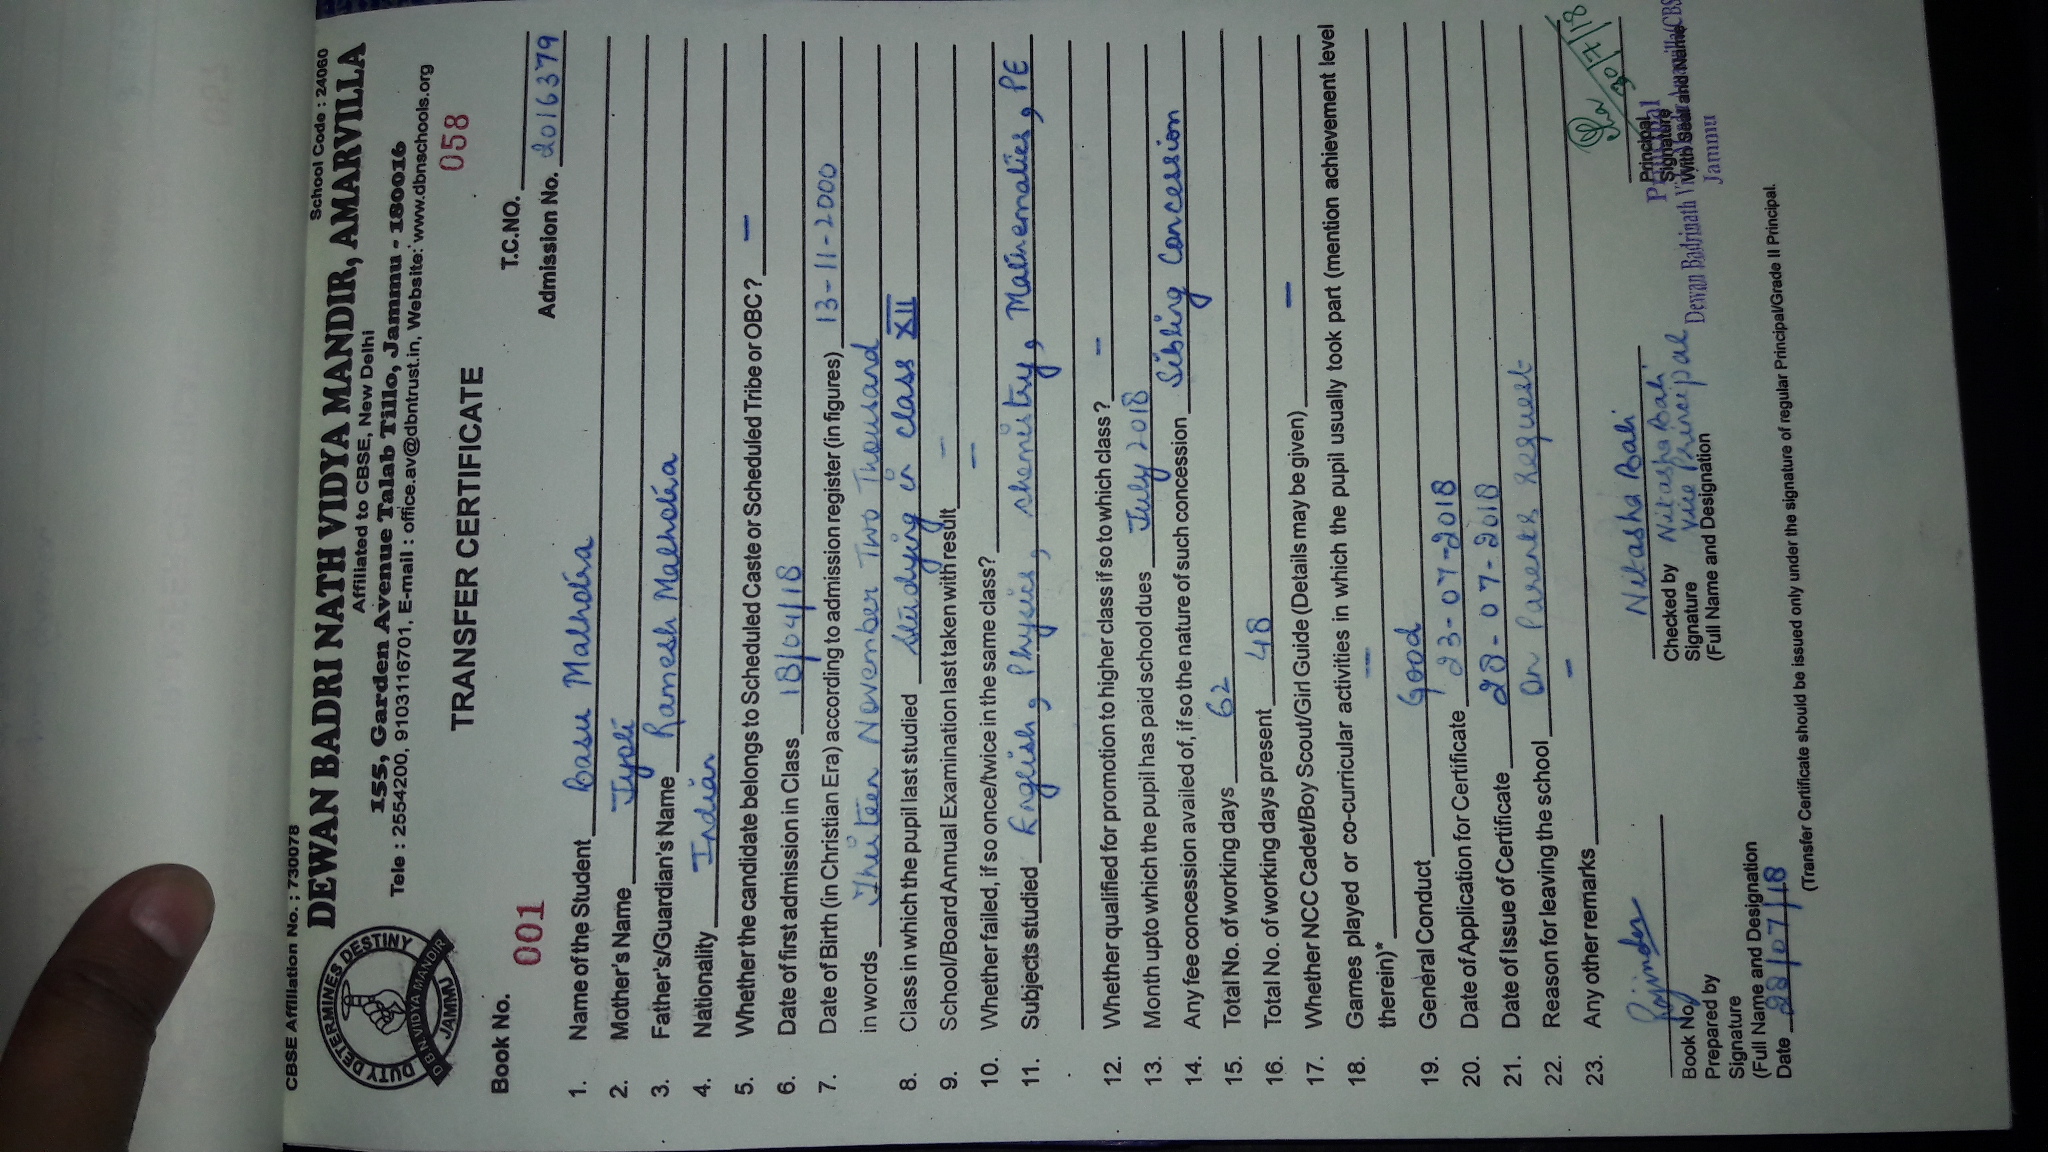 CBSE Affiliation No. ; 730078 School Code : 24060
DEWAN BADRI NATH VIDYA MANDIR, AMARVILLA
Affiliated to CBSE, New Delhi
155, Garden Avenue Talab Tillo, Jammu - 180016
Tele : 2554200, 9103116701, E-mail : office.av@dbntrust.in, Website: www.dbnschools.org
DUTY DETERMINES DESTINY
D B N VIDYA MANDIR
JAMMU
TRANSFER CERTIFICATE
058
Book No. 001
T.C.NO.
Admission No. 2016379
1. Name of the Student Basu Malhotra
2. Mother's Name Jyoti
3. Father's/Guardian's Name Ramesh Malhotra
4. Nationality Indian
5. Whether the candidate belongs to Scheduled Caste or Scheduled Tribe or OBC? —
6. Date of first admission in Class 18/04/18
7. Date of Birth (in Christian Era) according to admission register (in figures) 13-11-2000
in words Thirteen November Two Thousand
8. Class in which the pupil last studied Studying in class XII
9. School/Board Annual Examination last taken with result —
10. Whether failed, if so once/twice in the same class? —
11. Subjects studied English, Physics, chemistry, Mathematics, PE
12. Whether qualified for promotion to higher class if so to which class? —
13. Month upto which the pupil has paid school dues July 2018
14. Any fee concession availed of, if so the nature of such concession Sibling Concession
15. Total No. of working days 62
16. Total No. of working days present 48
17. Whether NCC Cadet/Boy Scout/Girl Guide (Details may be given) —
18. Games played or co-curricular activities in which the pupil usually took part (mention achievement level
therein)* —
19. General Conduct Good
20. Date of Application for Certificate 23-07-2018
21. Date of Issue of Certificate 28-07-2018
22. Reason for leaving the school On Parents Request
23. Any other remarks —
Rajinder
Book No.
Prepared by
Signature
(Full Name and Designation
Date 28/07/18
Nitasha Bali
Checked by Nitasha Bali
Signature Vice Principal
(Full Name and Designation
30/7/18
Principal
Signature
With Seal and Name
Principal
Dewan Badrinath Vidya
Jammu
(Transfer Certificate should be issued only under the signature of regular Principal/Grade II Principal.